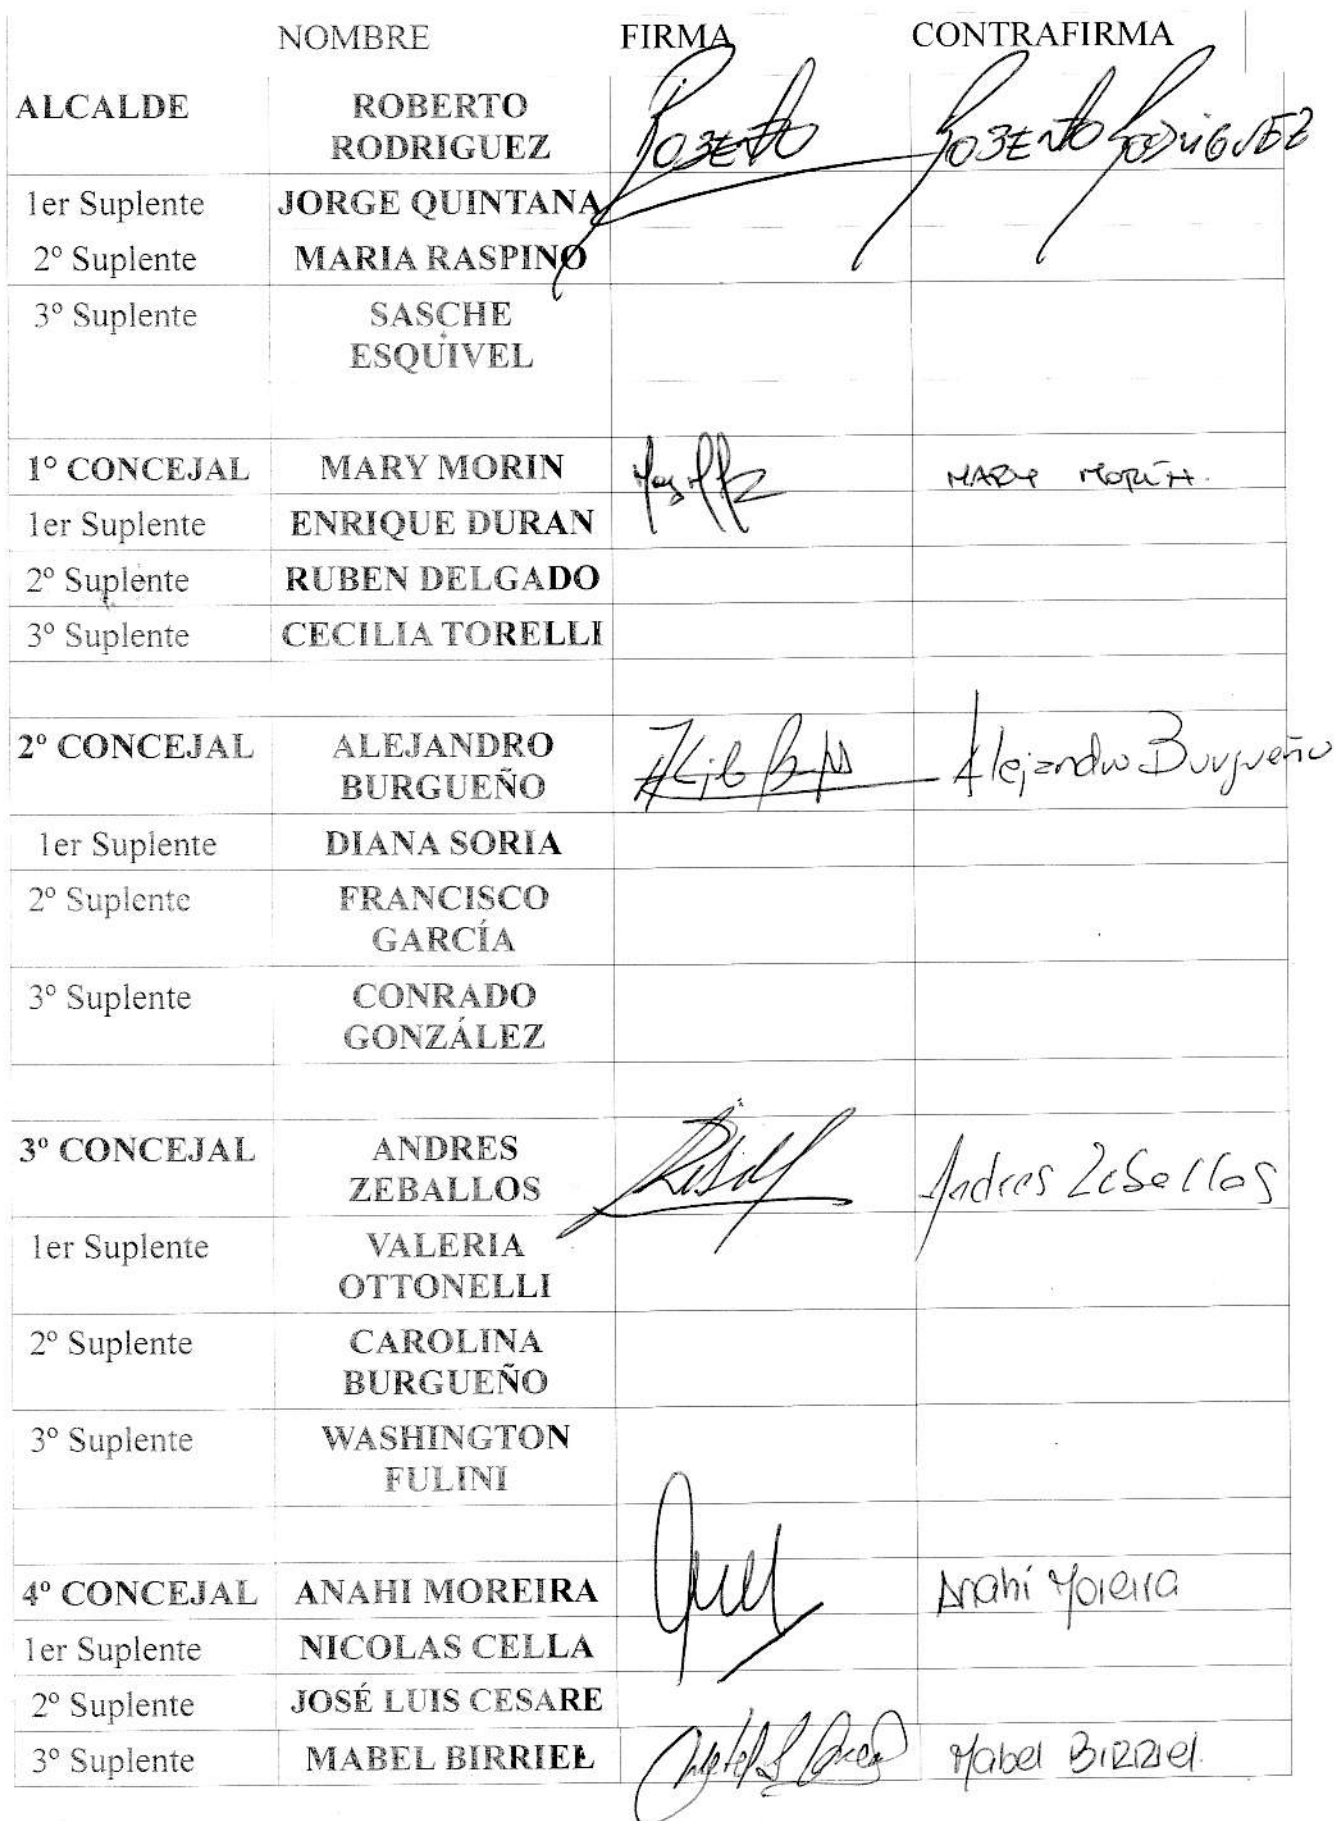 NOMBRE FIRMA CONTRAFIRMA
ALCALDE ROBERTO
RODRIGUEZ ROBERTO ROBERTO RODRIGUEZ
1er Suplente JORGE QUINTANA
2º Suplente MARIA RASPINO
3º Suplente SASCHE
ESQUIVEL
1º CONCEJAL MARY MORIN MARY MORIN.
1er Suplente ENRIQUE DURAN
2º Suplente RUBEN DELGADO
3º Suplente CECILIA TORELLI
2º CONCEJAL ALEJANDRO
BURGUEÑO Alejandro Burgueño
1er Suplente DIANA SORIA
2º Suplente FRANCISCO
GARCÍA
3º Suplente CONRADO
GONZÁLEZ
3º CONCEJAL ANDRES
ZEBALLOS Andres Zeballos
1er Suplente VALERIA
OTTONELLI
2º Suplente CAROLINA
BURGUEÑO
3º Suplente WASHINGTON
FULINI
4º CONCEJAL ANAHI MOREIRA Anahí Moreira
1er Suplente NICOLAS CELLA
2º Suplente JOSÉ LUIS CESARE
3º Suplente MABEL BIRRIEL Mabel BIRRIEl.